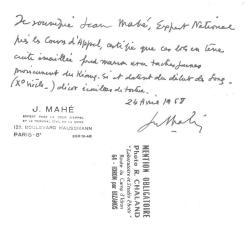 Je soussigné Jean Mahé, Expert National
près les Cours d'Appel, certifie que ce bol en terre
cuite émaillée fond marron avec taches jaunes
proviennent du Kiang-Si et datent du début des Song
(Xe siècle) décor écailles de tortue.
24 Avril 1958
J. MAHÉ
EXPERT PRÈS LA COUR D'APPEL
ET LE TRIBUNAL CIVIL DE LA SEINE
133, BOULEVARD HAUSSMANN
PARIS-8e
MENTION OBLIGATOIRE
Photo R. CHALAND
Route du Camp d'Idron
64 - IDRON par BIZANOS